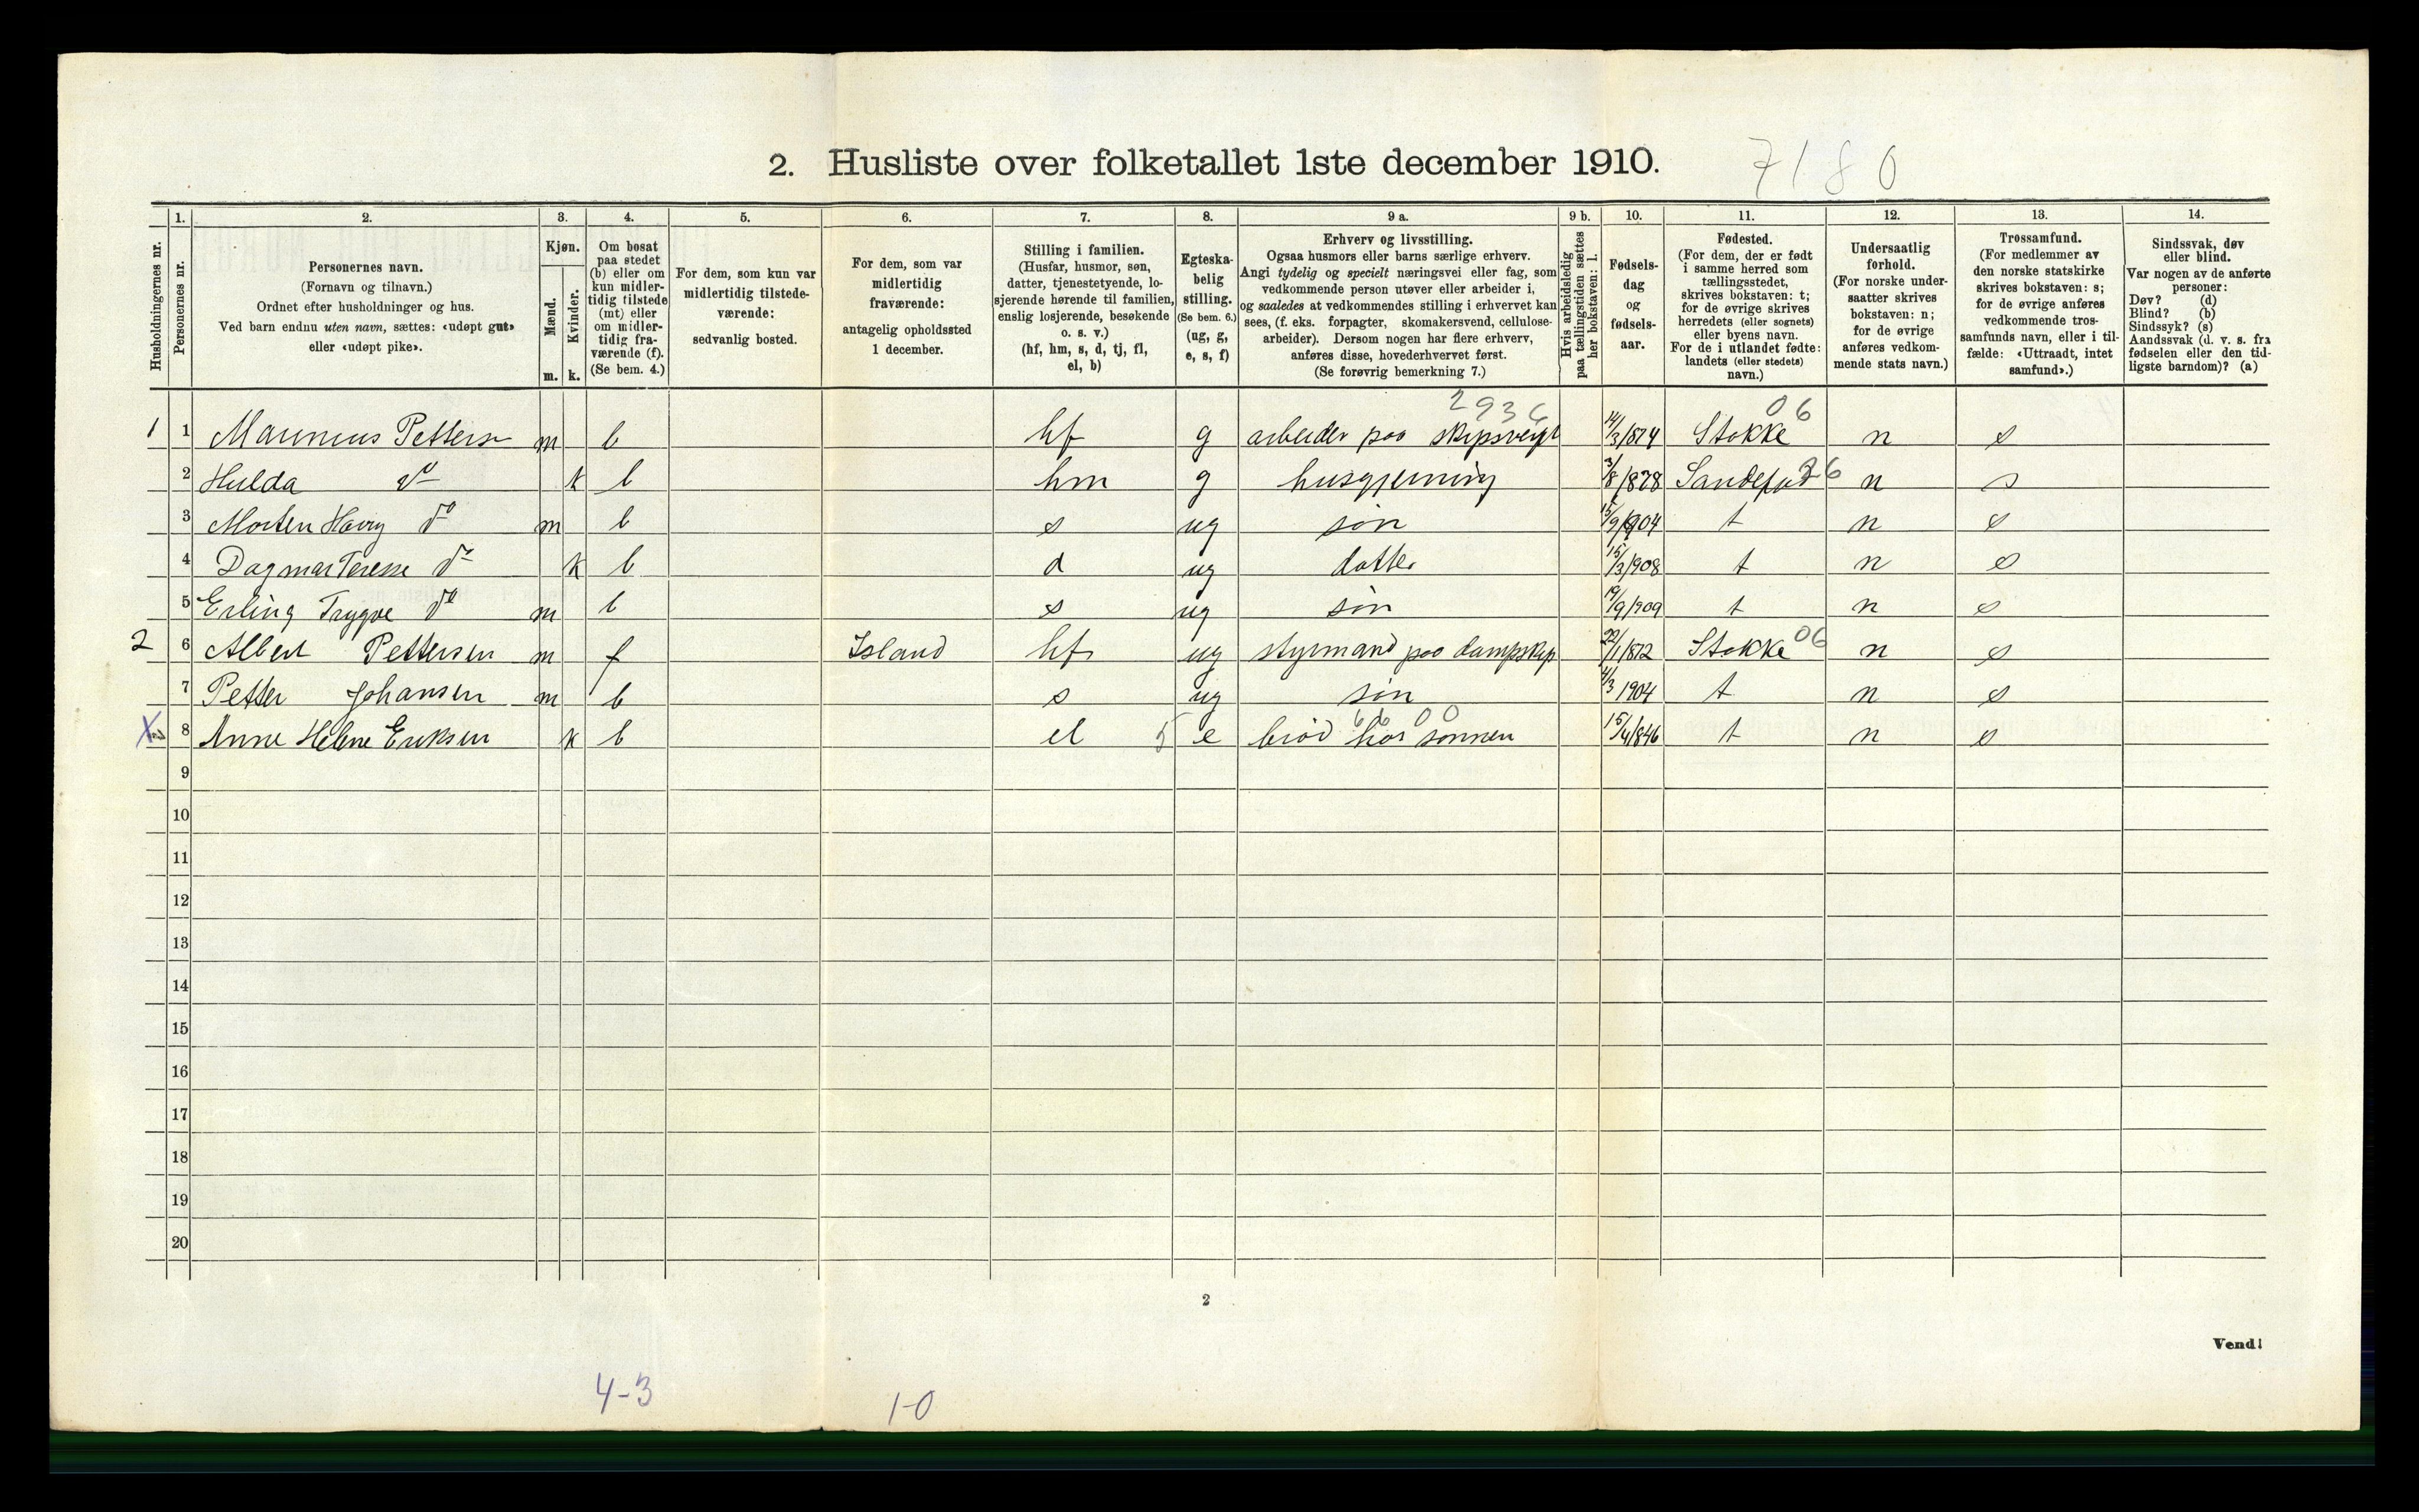 2. Husliste over folketallet 1ste december 1910. 7180
Husholdningernes nr.
1. Personernes nr.
2. Personernes navn. (Fornavn og tilnavn.) Ordnet efter husholdninger og hus. Ved barn endnu uten navn, sættes: «udøpt gut» eller «udøpt pike».
3. Kjøn. Mænd. m. Kvinder. k.
4. Om bosat paa stedet (b) eller om kun midlertidig tilstede (mt) eller om midlertidig fraværende (f). (Se bem. 4.)
5. For dem, som kun var midlertidig tilstedeværende: sedvanlig bosted.
6. For dem, som var midlertidig fraværende: antagelig opholdssted 1 december.
7. Stilling i familien. (Husfar, husmor, søn, datter, tjenestetyende, losjerende hørende til familien, enslig losjerende, besøkende o. s. v.) (hf, hm, s, d, tj, fl, el, b)
8. Egteskabelig stilling. (Se bem. 6.) (ug, g, e, s, f)
9 a. Erhverv og livsstilling. Ogsaa husmors eller barns særlige erhverv. Angi tydelig og specielt næringsvei eller fag, som vedkommende person utøver eller arbeider i, og saaledes at vedkommendes stilling i erhvervet kan sees, (f. eks. forpagter, skomakersvend, cellulosearbeider). Dersom nogen har flere erhverv, anføres disse, hovederhvervet først. (Se forøvrig bemerkning 7.)
9 b. Hvis arbeidsledig paa tællingstiden sættes her bokstaven: l.
10. Fødselsdag og fødselsaar.
11. Fødested. (For dem, der er født i samme herred som tællingsstedet, skrives bokstaven: t; for de øvrige skrives herredets (eller sognets) eller byens navn. For de i utlandet fødte: landets (eller stedets) navn.)
12. Undersaatlig forhold. (For norske undersaatter skrives bokstaven: n; for de øvrige anføres vedkommende stats navn.)
13. Trossamfund. (For medlemmer av den norske statskirke skrives bokstaven: s; for de øvrige anføres vedkommende trossamfunds navn, eller i tilfælde: «Uttraadt, intet samfund».)
14. Sindssvak, døv eller blind. Var nogen av de anførte personer: Døv? (d) Blind? (b) Sindssyk? (s) Aandssvak (d. v. s. fra fødselen eller den tidligste barndom)? (a)
1 1 m b hf g arbeider paa 14/3/874 Stokke 06 n s
2 Hulda do k b hm g husgjerning 3/8/878 26 n s
3 Morten Harry do m b s ug søn 15/9/904 t n s
4 Dagmar Terese do k b d ug datter 15/3/908 t n s
5 Erling Trygve do m b s ug søn 19/9/909 t n s
2 6 Albert Pettersen m f Island hf ug styrmand paa dampskip 22/1/872 Stokke 06 n s
7 Petter Johansen m b s ug søn 4/3 1904 t n s
X 8 Anne Helene Eriksen k b el 5 e brød hos sønnen 66 00 15/4/846 t n s
9
10
11
12
13
14
15
16
17
18
19
20
2
Vend!
4-3
1-0